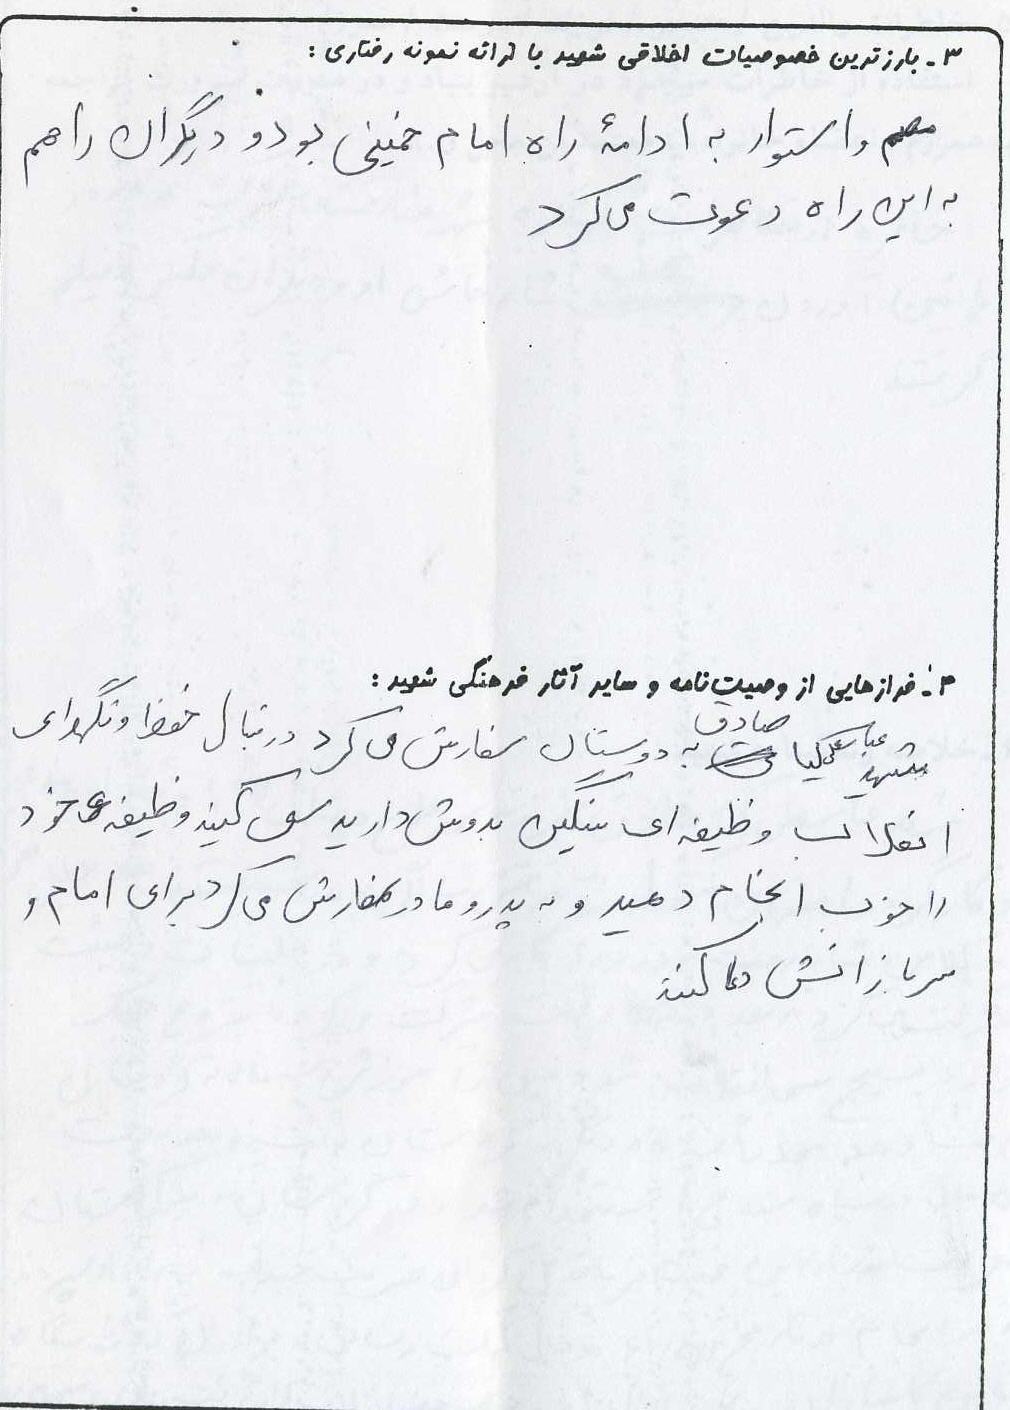 ۳- بارزترین خصوصیات اخلاقی شهید با ارائه نمونه رفتاری:
مصمم واستوار به ادامهٔ راه امام خمینی بود و دیگران را هم
به این راه دعوت می‌کرد
۴- فرازهایی از وصیت‌نامه و سایر آثار فرهنگی شهید:
صادق
شهید عباسعلی کیا به دوستان سفارش می‌کرد در قبال حفظ و نگهدای
انقلاب وظیفه‌ای سنگین بدوش دارید سعی کنید وظیفه خود
را خوب انجام دهید و به پدر و مادر سفارش می‌کرد برای امام و
سربازانش دعا کنند